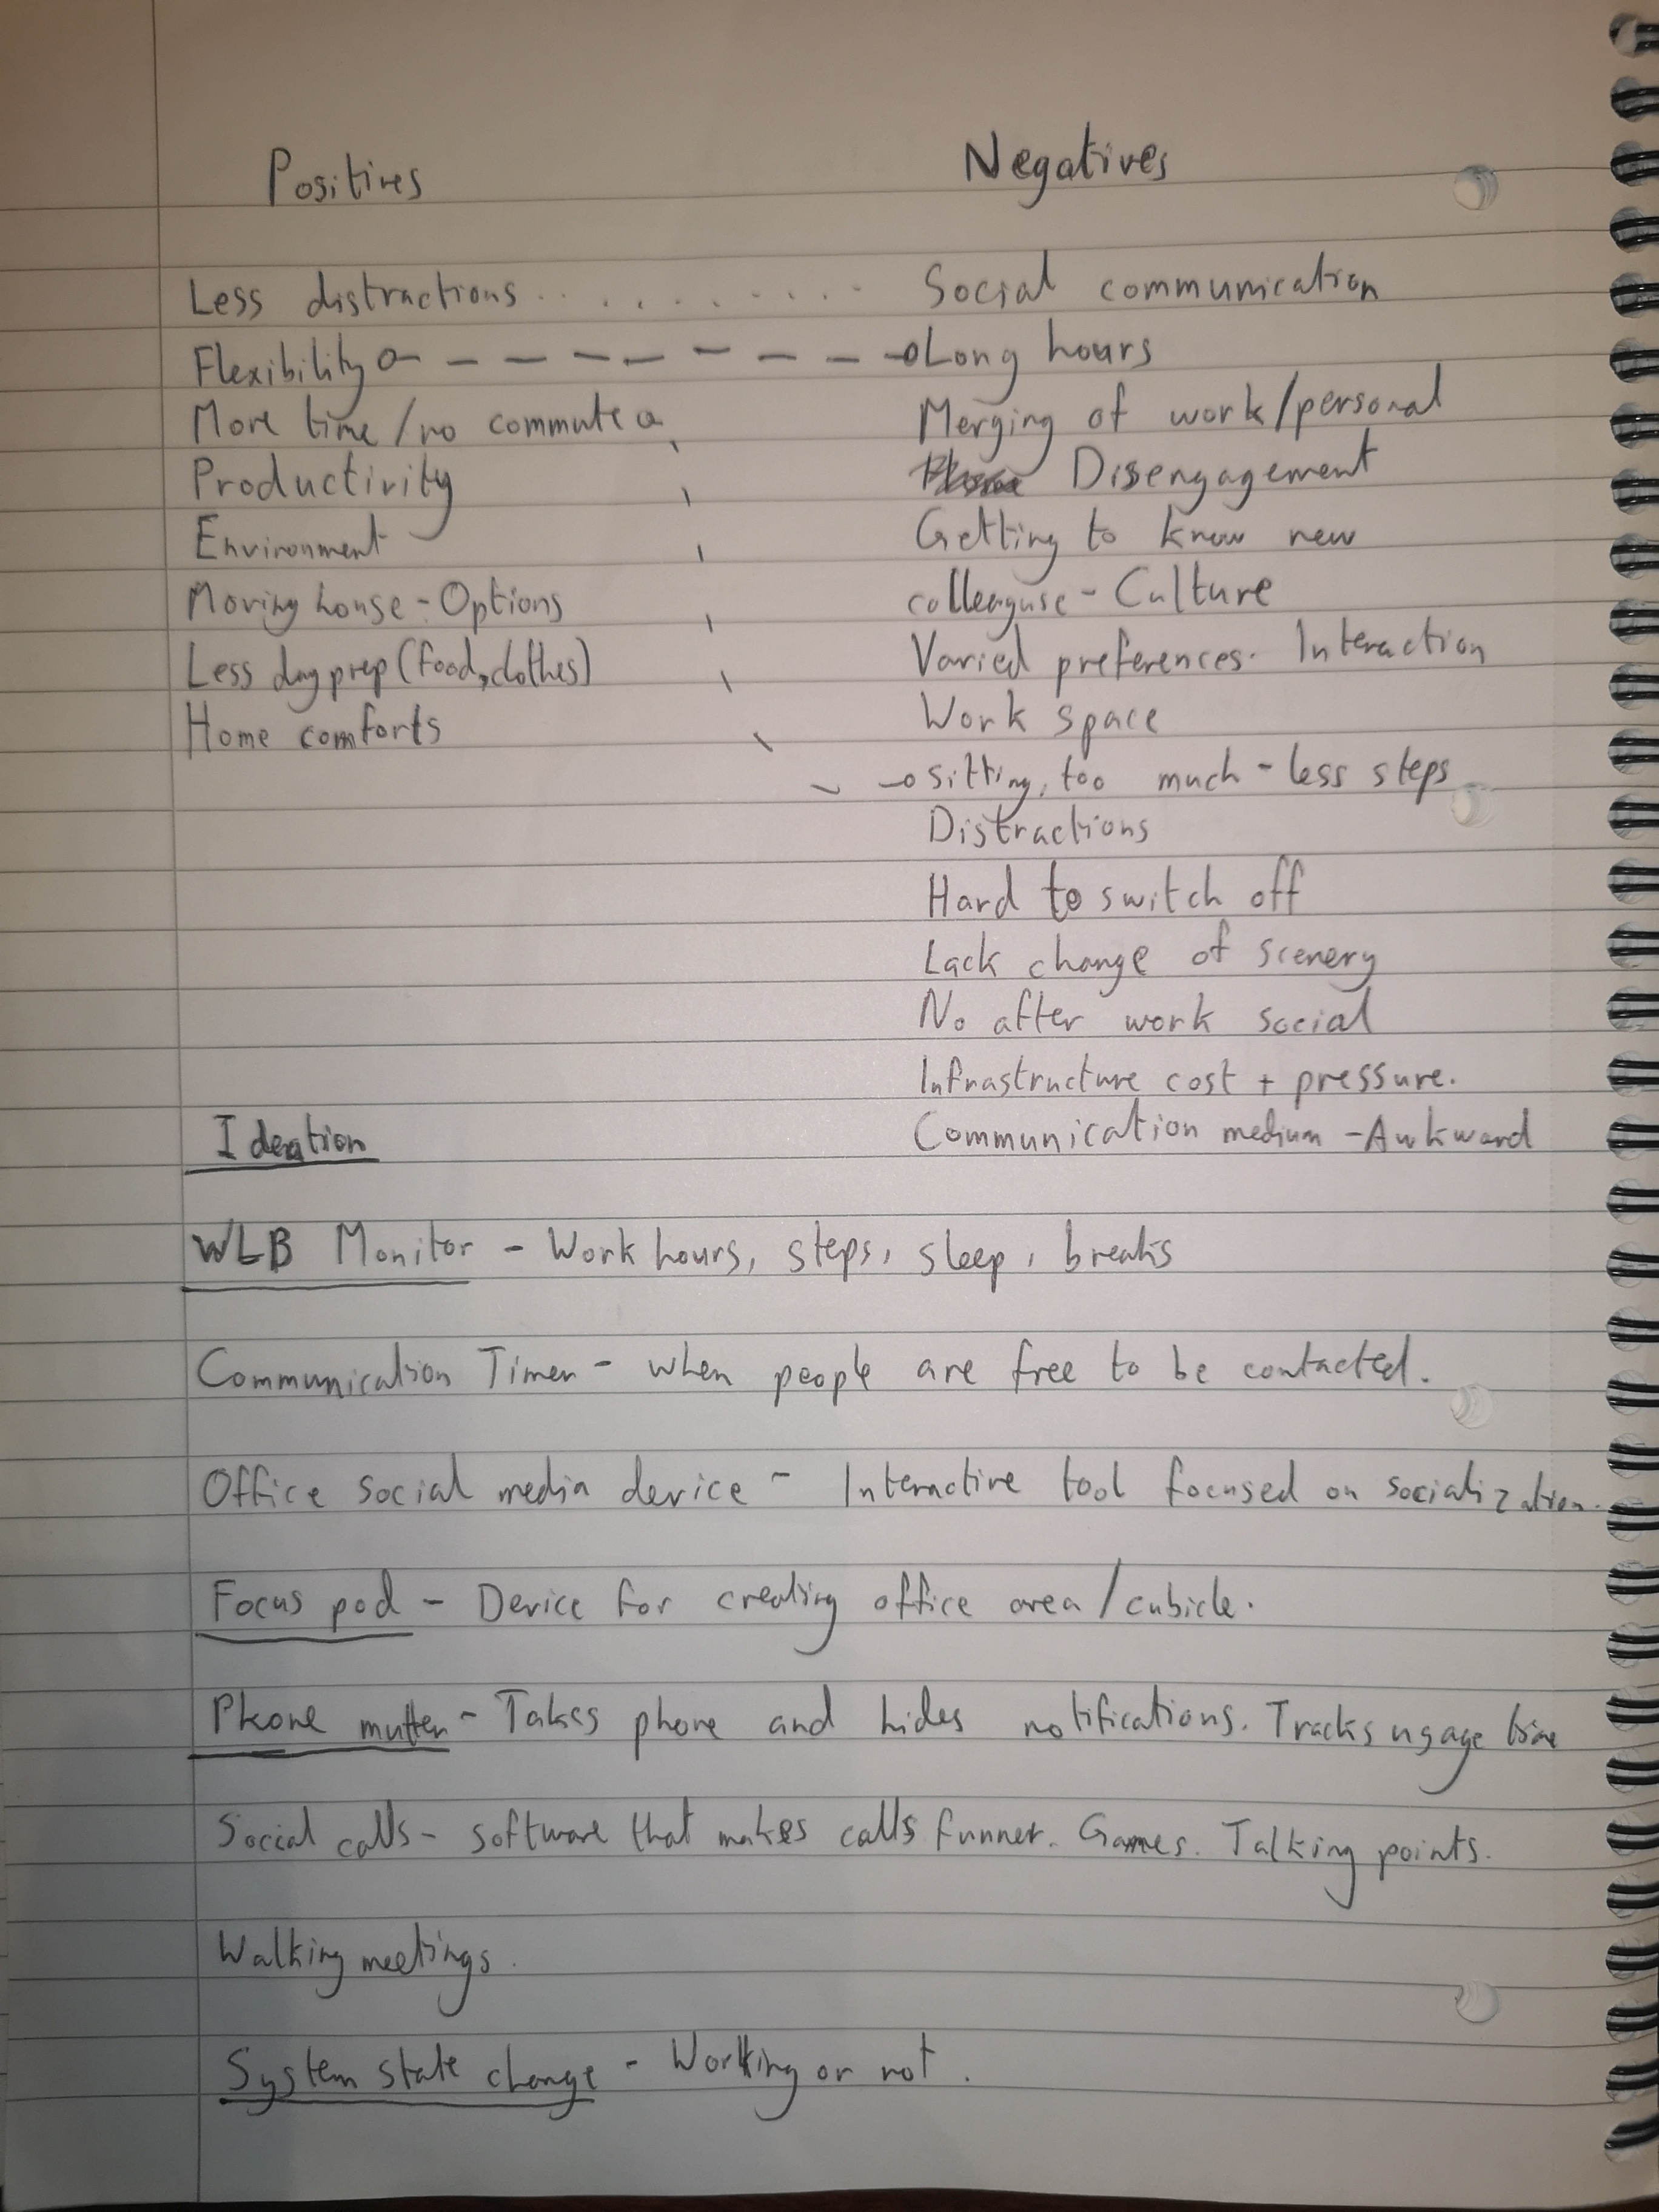 Positives
Less distractions . . . . . . . . . .
Flexibility
More time / no commute
Productivity
Environment
Moving house - Options
Less day prep (food, clothes)
Home comforts
Negatives
Social communication
Long hours
Merging of work/personal
Disengagement
Getting to know new
colleaguse - Culture
Varied preferences. Interaction
Work space
Sitting, too much - less steps
Distractions
Hard to switch off
Lack change of scenery
No after work social
Infrastructure cost + pressure.
Communication medium - Awkward
Ideation
WLB Monitor - Work hours, steps, sleep, breaks
Communication Timer - when people are free to be contacted.
Office social media device - Interactive tool focused on socialization.
Focus pod - Device for creating office area / cubicle.
Phone mutter - Takes phone and hides notifications. Tracks usage time
Social calls - software that makes calls funner. Games. Talking points.
Walking meetings.
System state change - Working or not.